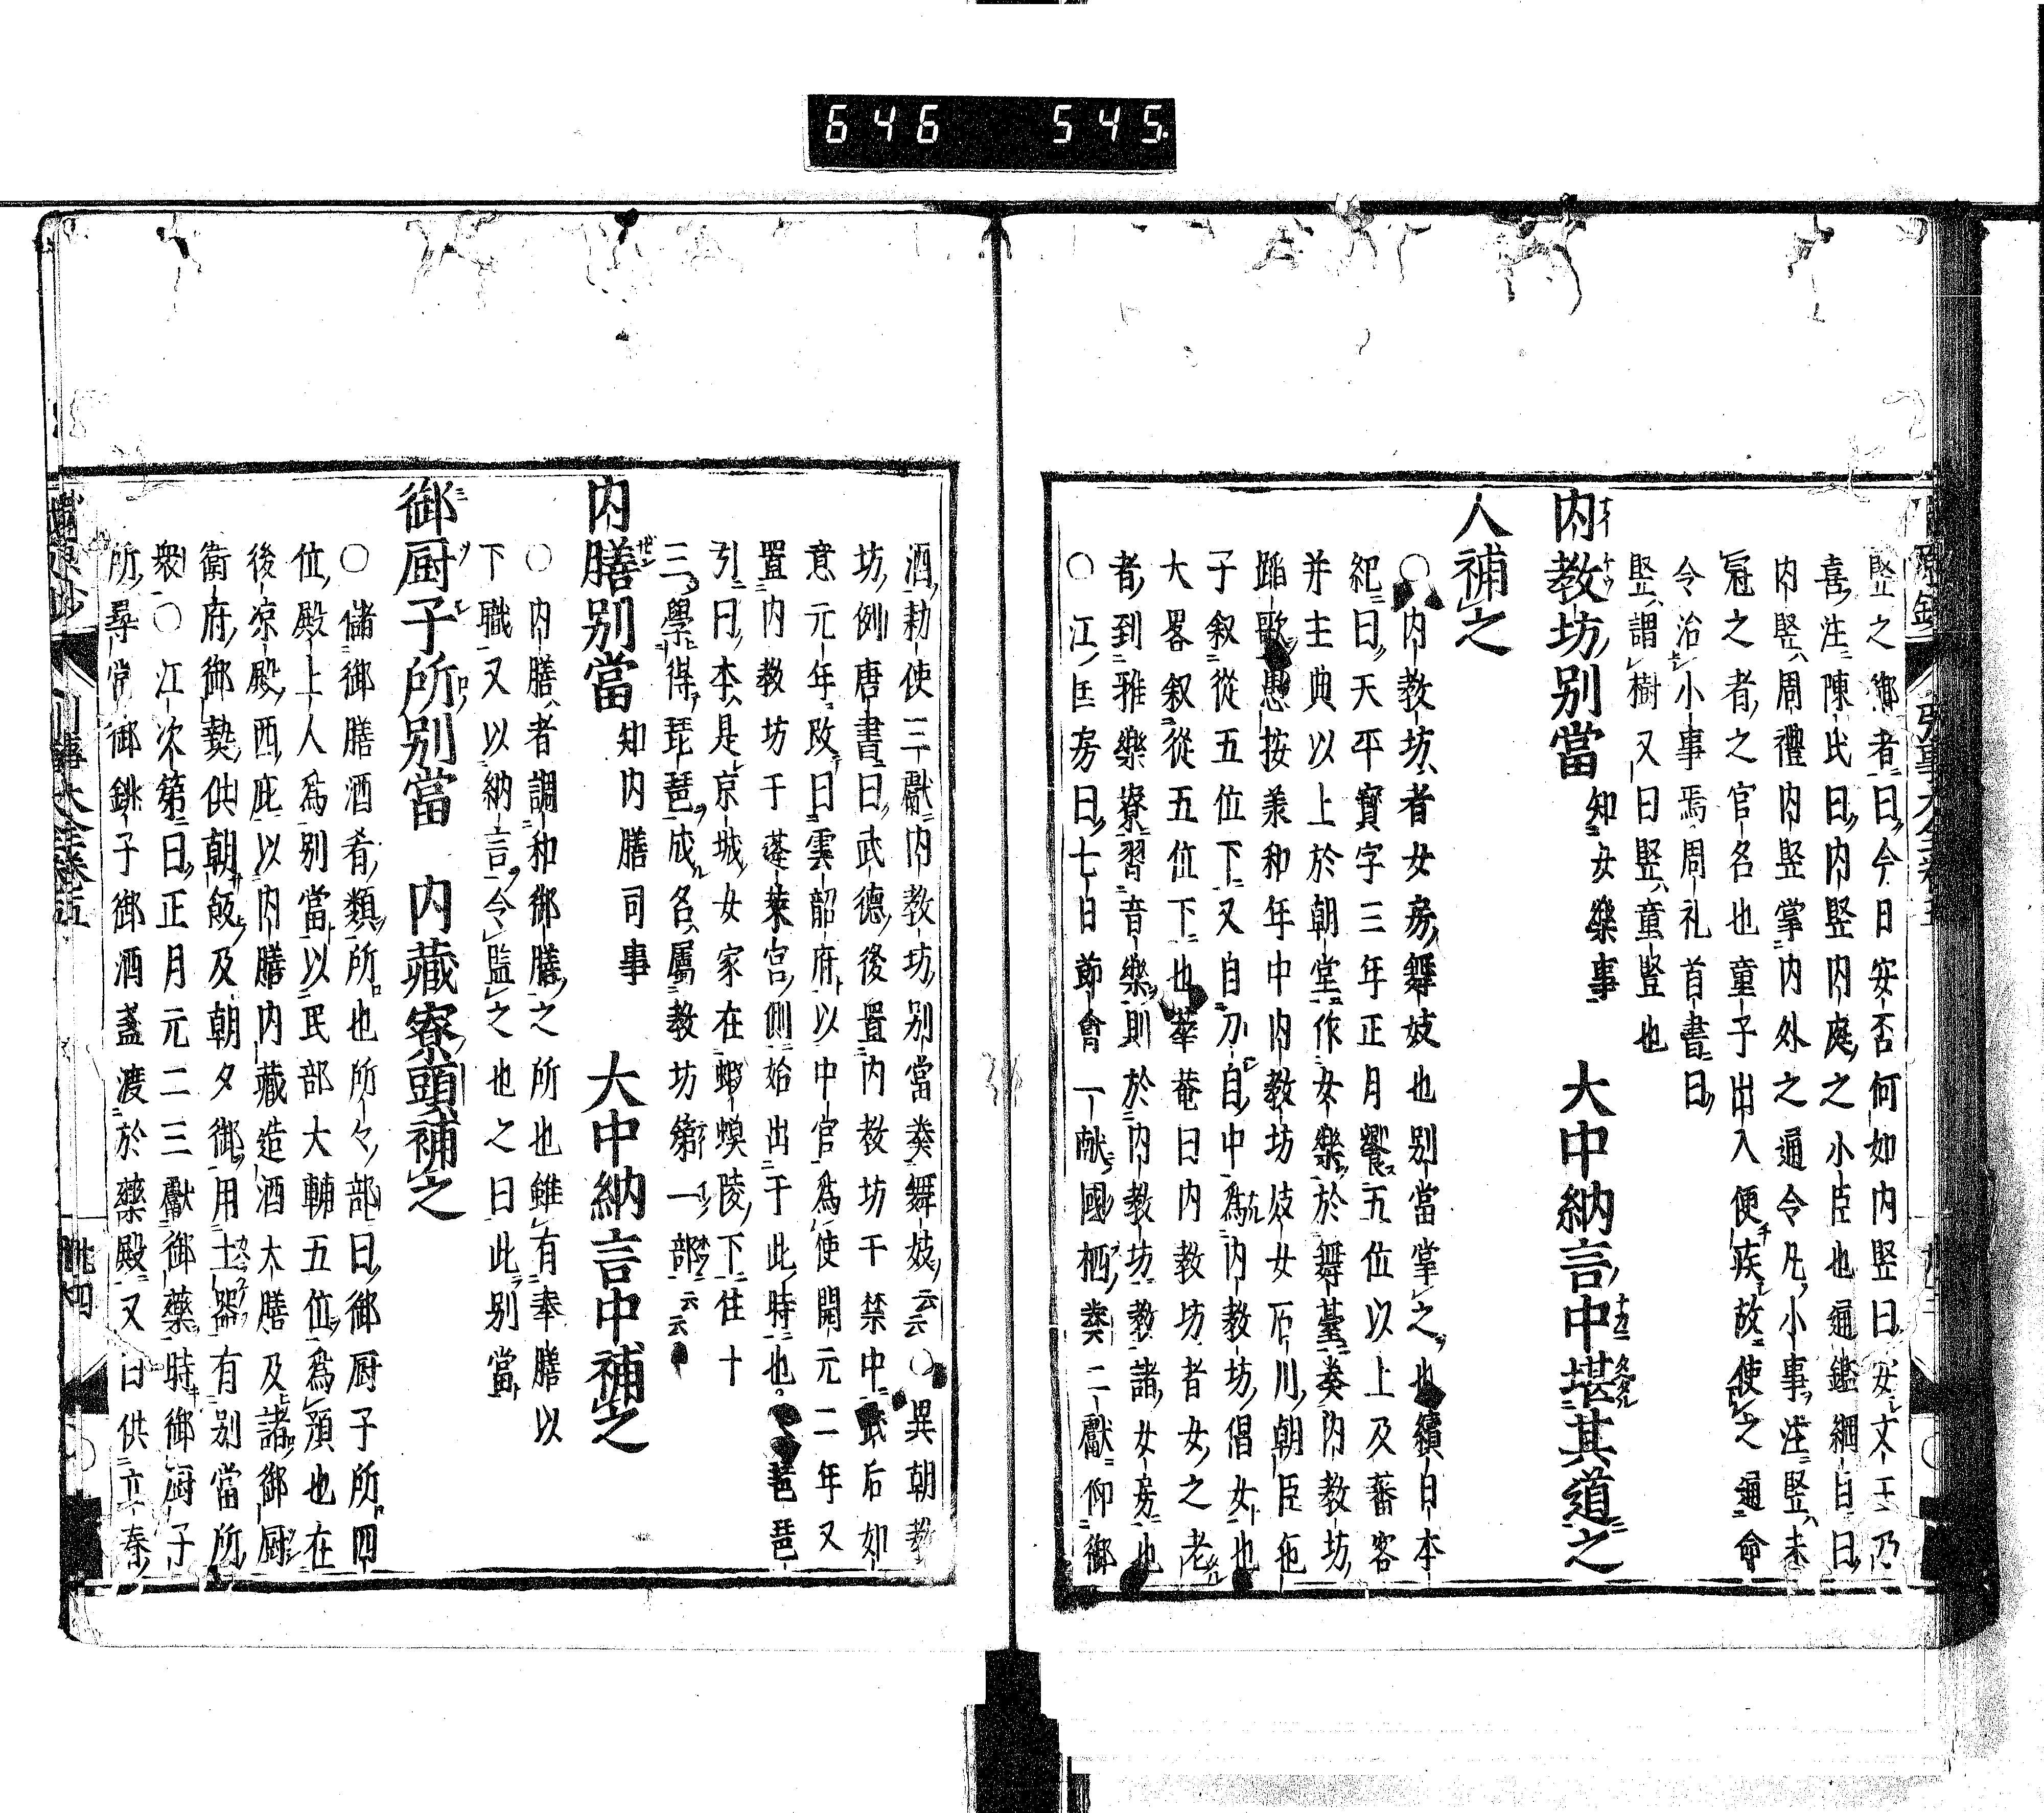 646 545
竪之御者曰今日安否何如内竪曰安文王乃
喜注陳氏曰内竪内庭之小臣也通鑑綱目曰
内竪周禮内竪掌内外之通令凡小事注竪未
冠之者之官名也童子出入便疾故使之通命
令治小事焉周礼首書曰
竪謂樹又曰竪童豎也
内教坊別當 知女樂事 大中納言中堪其道之
人補之
○内教坊者女房舞妓也別當掌之也續日本
紀曰天平寳字三年正月饗五位以上及蕃客
并主典以上於朝堂作女樂於舞臺奏内教坊
蹈歌愚按羕和年中内教坊妓女石川朝臣色
子叙從五位下又自刀自中爲内教坊倡女也
大畧叙從五位下也華菴曰内教坊者女之老
者到雅樂寮習音樂則於内教坊教諸女房也
○江匡房曰七日節會一献國栖奏二獻仰御
酒勅使三獻内教坊別當奏舞妓云云○異朝教
坊例唐書曰武德後置内教坊于禁中武后如
意元年改曰雲韶府以中官爲使開元二年又
置内教坊于蓬萊宮側始出于此時也 琶琶
引曰本是京城女家在蝦蟆陵下住十
三學得琵琶成名屬教坊第一部云云
内膳別當 知内膳司事 大中納言中補之
○内膳者調和御膳之所也雖有奉膳以
下職又以納言令監之也之曰此別當
御厨子所別當 内藏寮頭補之
○儲御膳酒肴類所也所々部曰御厨子所四
位殿上人爲別當以民部大輔五位爲預也在
後凉殿西庇以内膳内藏造酒大膳及諸御厨
衛府御贄供朝飯及朝夕御用土器有別當所
衆○江次第曰正月元二三獻御藥時御厨子
所尋常御銚子御酒盞渡於藥殿又曰供立奏